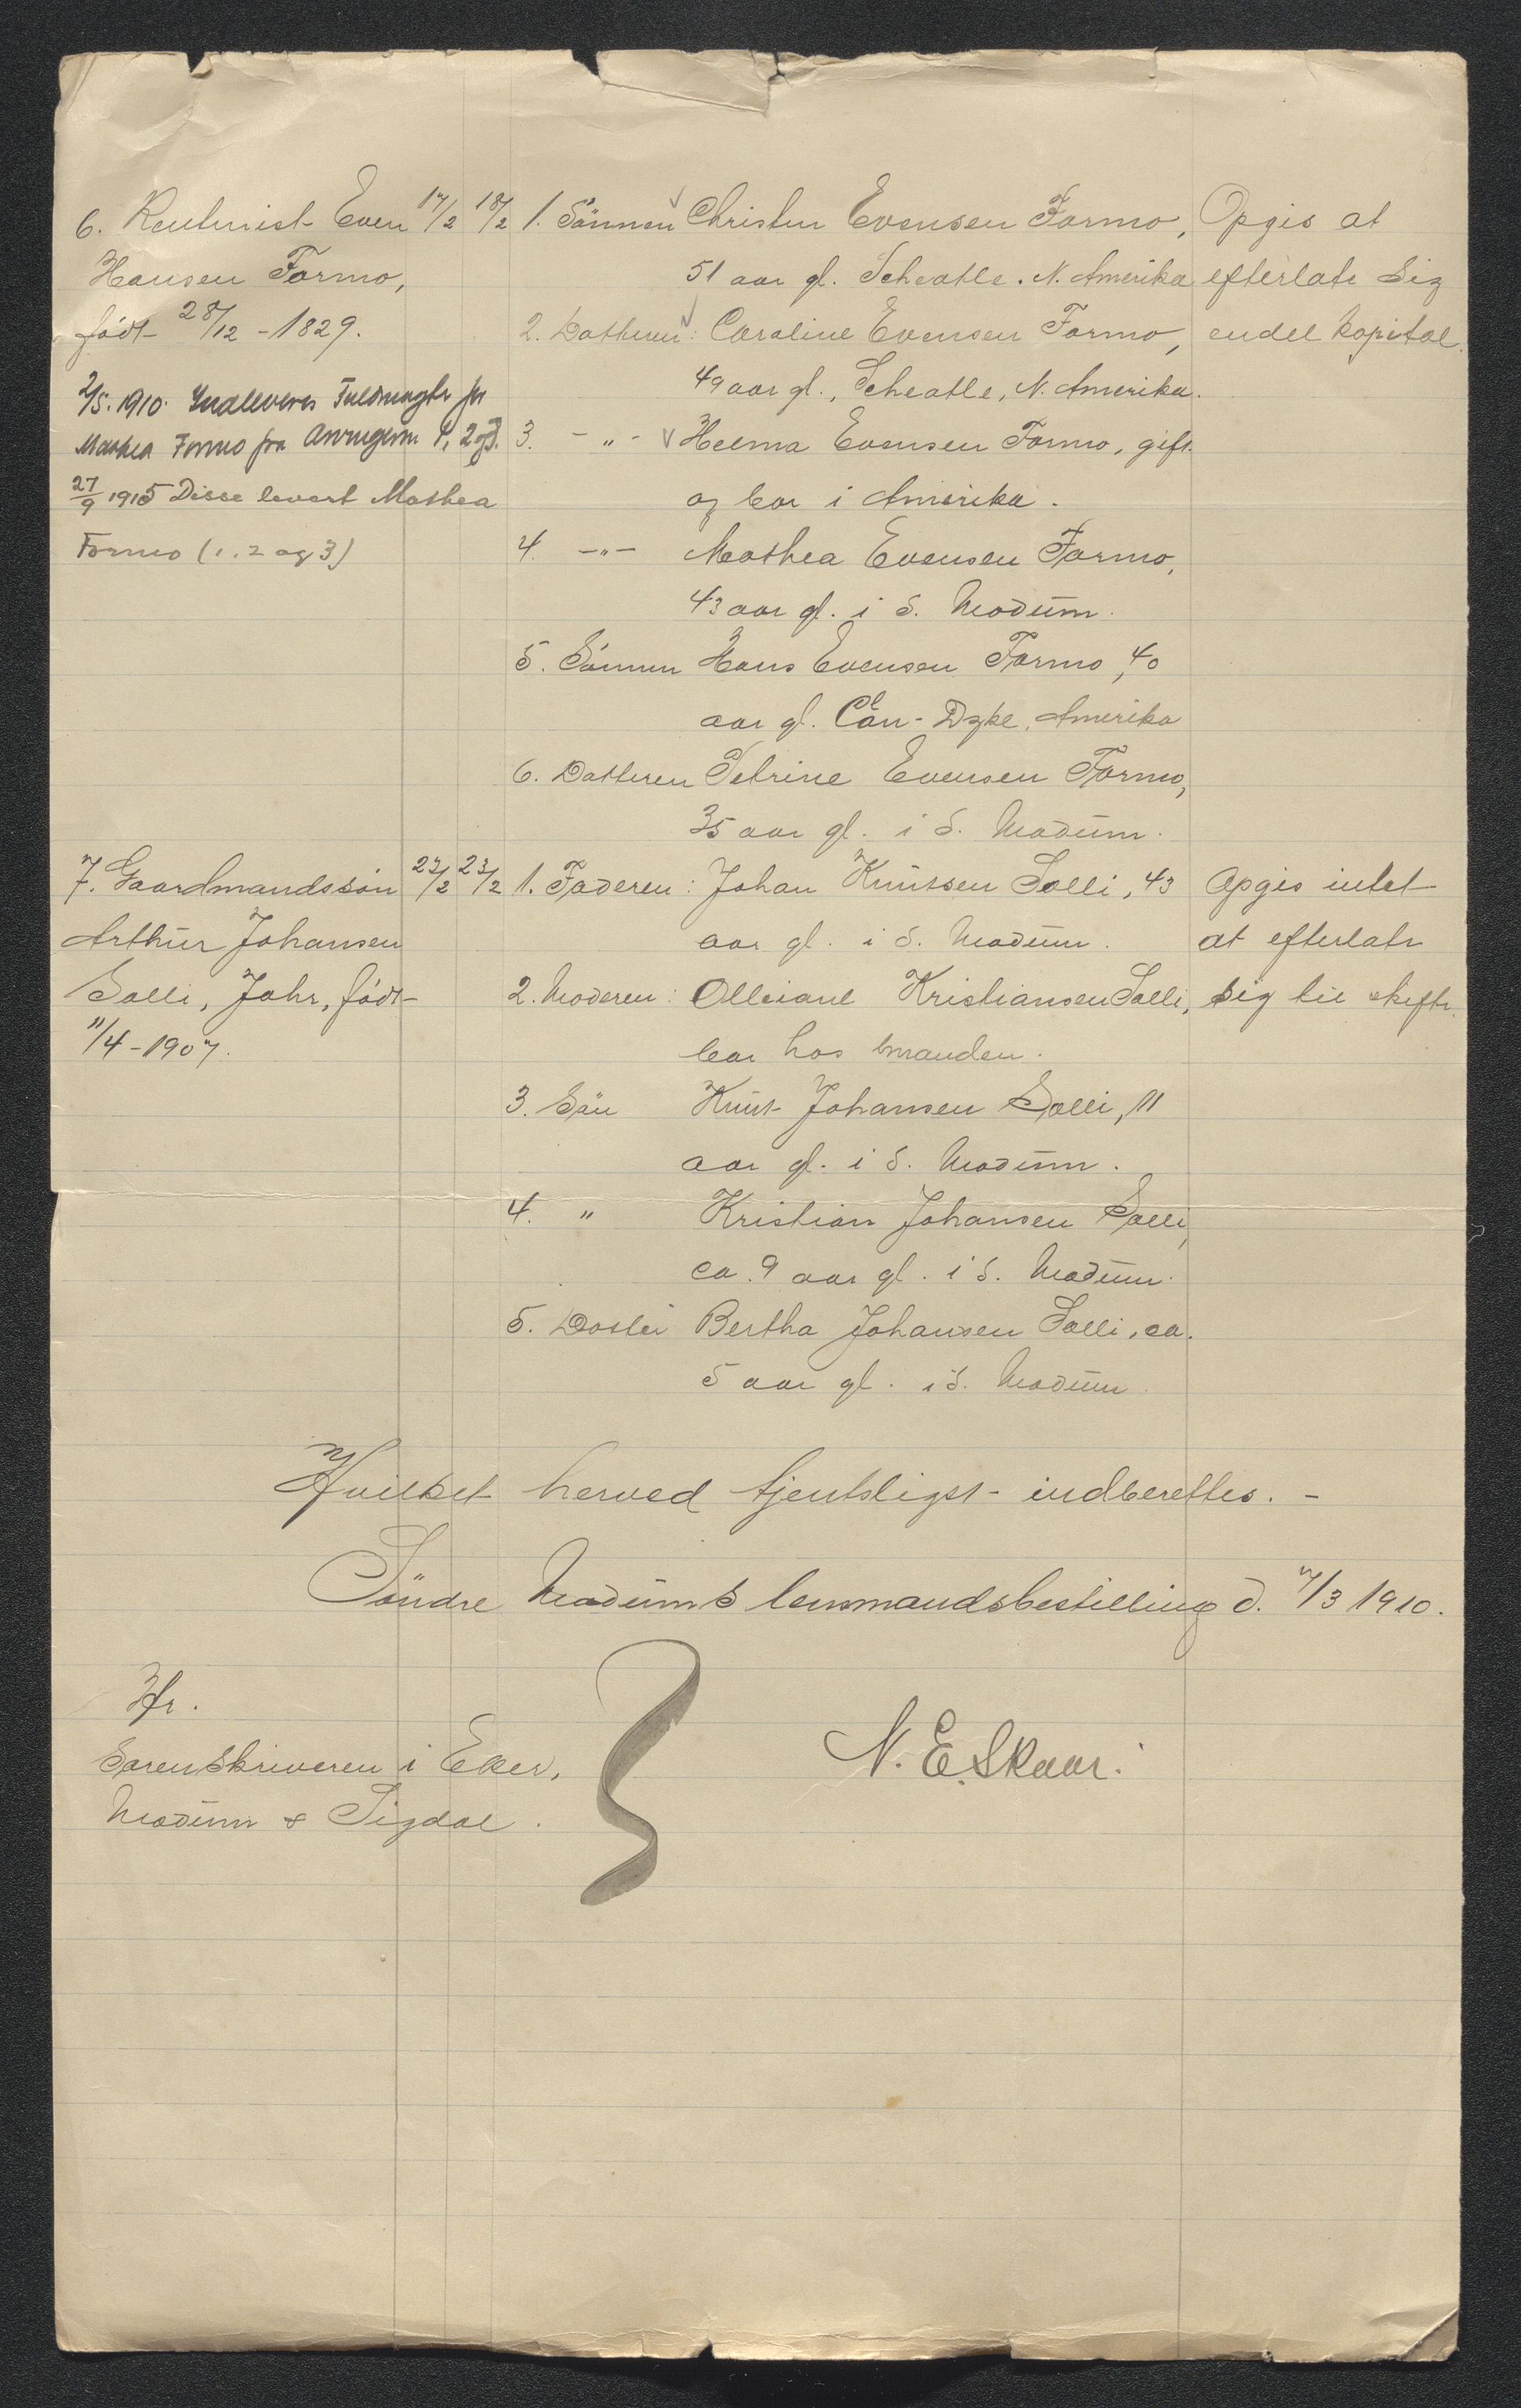 6. Rentenist Even
Hansen Formo,
født 28/12 - 1829.
2/5. 1910. Indleveres Fuldmagter for
Mathea Formo fra Arvingerne 1, 2 og 3.
27/9 1915 Disse levert Mathea
Formo (1. 2 og 3)
17/2 18/2
1. Sønnen Christen Evensen Formo,
51 aar gl. Scheatle. N. Amerika
2. Datteren: Caroline Evensen Formo,
49 aar gl., Scheatle, N. Amerika.
3. - " - Helma Evensen Formo, gift
og bor i Amerika.
4. - " - Mathea Evensen Formo,
43 aar gl. i S. Modum.
5. Sønnen Hans Evensen Formo, 40
aar gl. Amerika
6. Datteren Petrine Evensen Formo,
35 aar gl. i S. Modum.
Opgis at
efterlate sig
endel kapital.
7. Gaardmandssøn
Arthur Johansen
Solli, født
11/4 - 1907.
22/2 23/2
1. Faderen: Johan Knutsen Solli, 43
aar gl. i S. Modum.
2. Moderen: Olleiane Kristiansen Solli,
bor hos manden.
3. Søn Knut Johansen Solli, 11
aar gl. i S. Modum.
4. " Kristian Johansen Solli,
ca. 9 aar gl. i S. Modum.
5. Datter Bertha Johansen Solli, ca.
5 aar gl. i S. Modum.
Opgis intet
at efterlate
sig til skifte.
Hvilket herved tjentsligst indberettes. -
Søndre Modums lensmandsbestilling d. 7/3 1910.
N. E. Skaar.
Hr.
Sorenskriveren i Eker,
Modum & Sigdal.